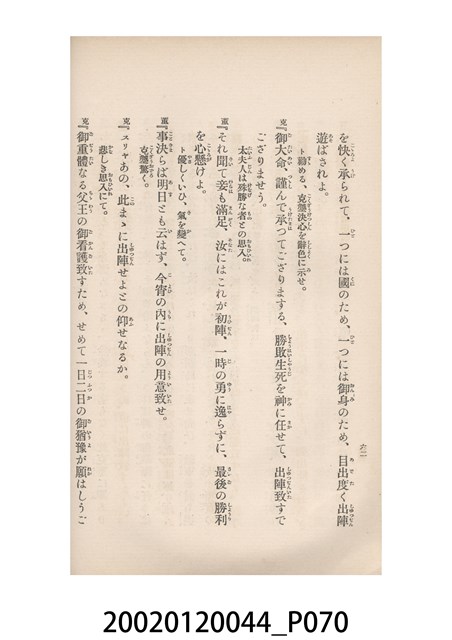 六二
を快く承られて、一つには國のため、一つには御身のため、目出度く出陣
遊ばされよ。
ト勸める、克讐決心を辭色に示せ。
克『御大命、謹んで承つてござりまする、勝敗生死を神に任せて、出陣致すで
ござりませう。
太夫人は殊勝な者との思入。
薫『それ聞て妾も滿足、汝にはこれが初陣、一時の勇に逸らずに、最後の勝利
を心懸けよ。
ト優しくいひ、氣を變へて。
薫『事決らば明日とも云はず、今宵の内に出陣の用意致せ。
克讐驚く。
克『スリャあの、此まゝに出陣せよとの仰せなるか。
悲しき思入にて。
克『御重體なる父王の御看護致すため、せめて一日二日の御猶豫が願はしうご
20020120044_P070